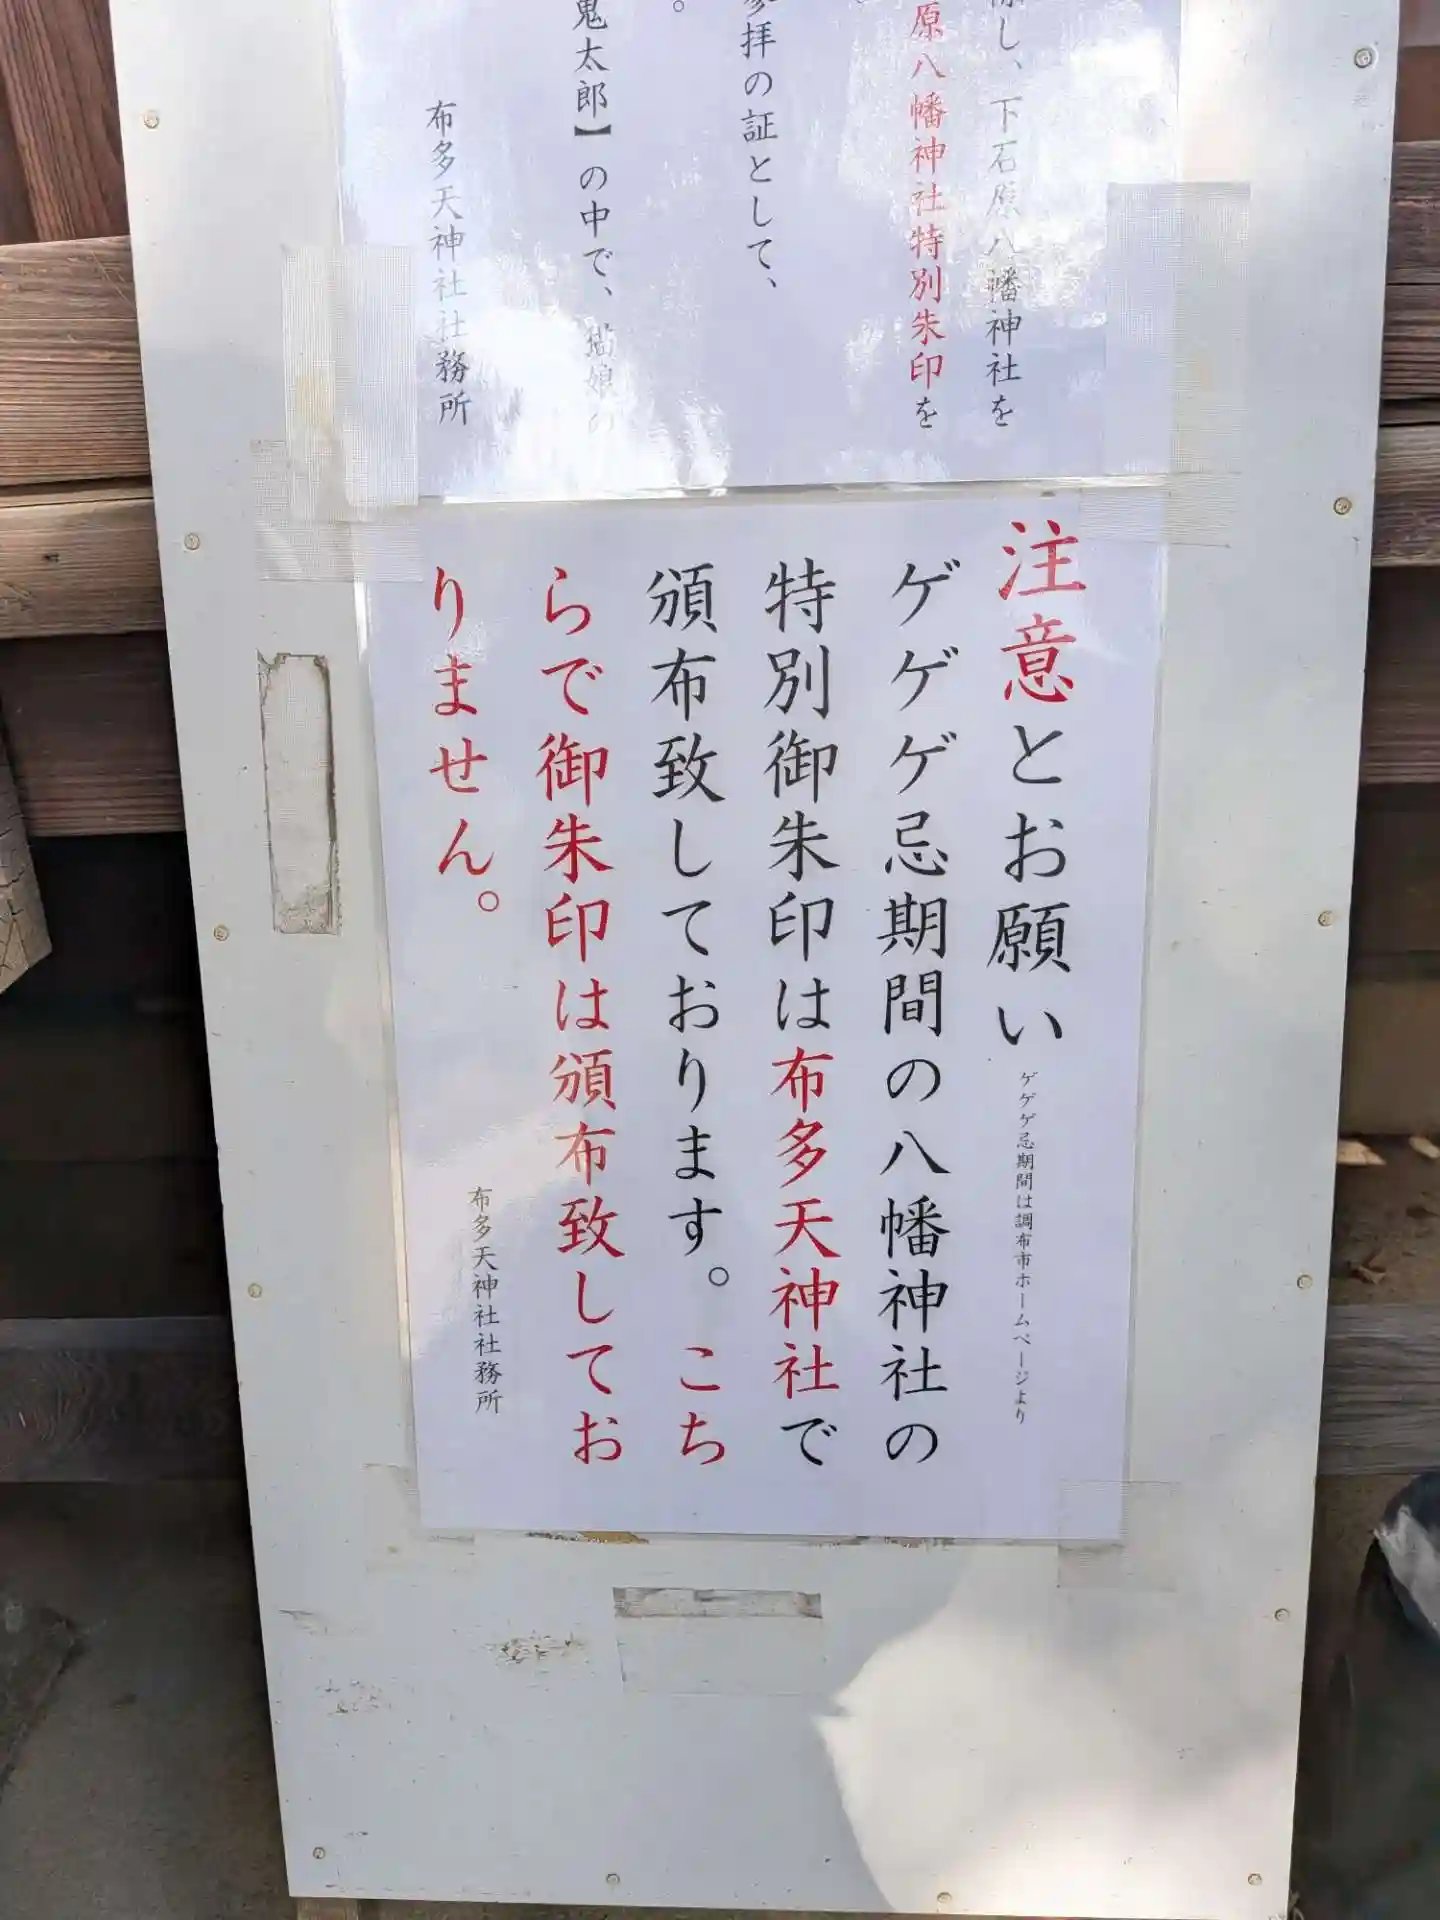 し、下石原八幡神社を
原八幡神社特別朱印を
拝の証として、
。
鬼太郎】の中で、猫娘の
布多天神社社務所
注意とお願い
ゲゲゲ忌期間は調布市ホームページより
ゲゲゲ忌期間の八幡神社の
特別御朱印は布多天神社で
頒布致しております。こち
らで御朱印は頒布致してお
りません。
布多天神社社務所